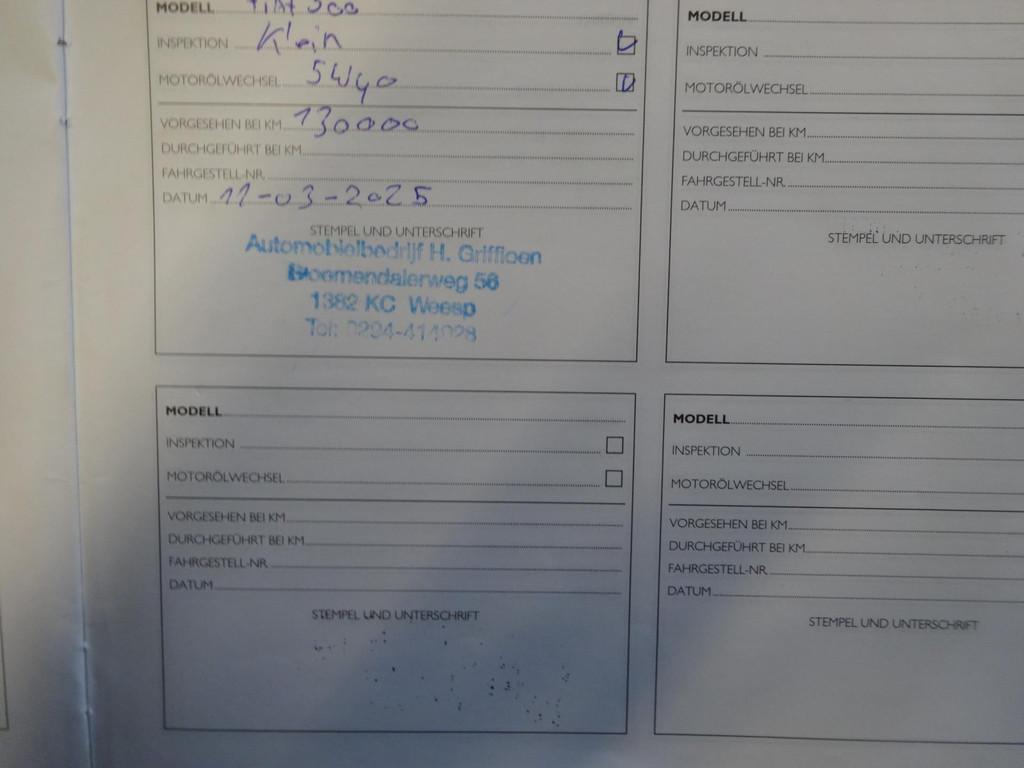 MODELL Fiat 500
INSPEKTION Klein
MOTORÖLWECHSEL 5W40
VORGESEHEN BEI KM 130000
DURCHGEFÜHRT BEI KM
FAHRGESTELL-NR.
DATUM 11-03-2025
STEMPEL UND UNTERSCHRIFT
Automobielbedrijf H. Griffioen
Bloemendalerweg 56
1382 KC Weesp
Tel: 0294-414028
MODELL
INSPEKTION
MOTORÖLWECHSEL
VORGESEHEN BEI KM
DURCHGEFÜHRT BEI KM
FAHRGESTELL-NR.
DATUM
STEMPEL UND UNTERSCHRIFT
MODELL
INSPEKTION
MOTORÖLWECHSEL
VORGESEHEN BEI KM
DURCHGEFÜHRT BEI KM
FAHRGESTELL-NR
DATUM
STEMPEL UND UNTERSCHRIFT
MODELL
INSPEKTION
MOTORÖLWECHSEL
VORGESEHEN BEI KM
DURCHGEFÜHRT BEI KM
FAHRGESTELL-NR
DATUM
STEMPEL UND UNTERSCHRIFT